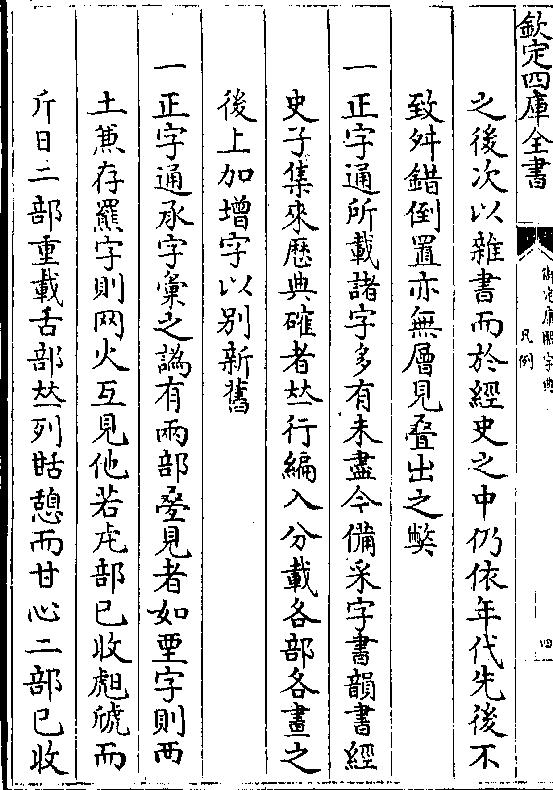 欽定四庫全書
御定康熙字典
凡例
四
之後次以雜書而於經史之中仍依年代先後不
致舛錯倒置亦無層見疊出之弊
一正字通所載諸字多有未盡今備采字書韻書經
史子集來歷典確者𠀤行編入分載各部各畫之
後上加增字以別新舊
一正字通承字彙之譌有兩部疊見者如垔字則襾
土兼存羆字則网火互見他若虍部已收虨虓而
斤日二部重載舌部𠀤列甛憩而甘心二部已收